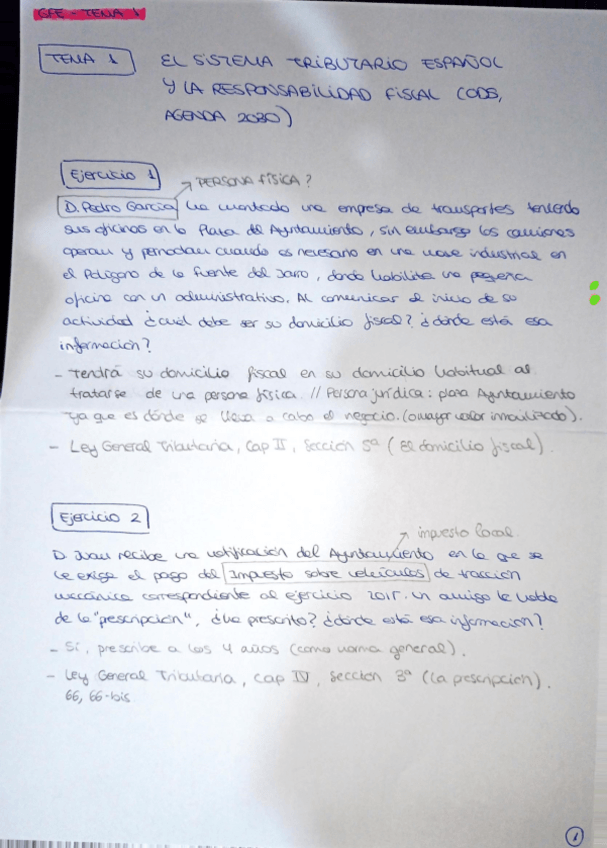 GFE - TEMA 1
TEMA 1 EL SISTEMA TRIBUTARIO ESPAÑOL
Y LA RESPONSABILIDAD FISCAL (ODS,
AGENDA 2030)
Ejercicio 1
PERSONA FÍSICA?
D. Pedro García ha montado una empresa de transportes teniendo
sus oficinas en la Plaza del Ayuntamiento, sin embargo los camiones
operan y pernoctan cuando es necesario en una nave industrial en
el Polígono de la Fuente del Jarro, donde habilita una pequeña
oficina con un administrativo. Al comunicar el inicio de su
actividad ¿cuál debe ser su domicilio fiscal? ¿dónde está esa
información?
- Tendrá su domicilio fiscal en su domicilio habitual al
tratarse de una persona física. // Persona jurídica: plaza Ayuntamiento
ya que es dónde se lleva a cabo el negocio. (o mayor valor inmovilizado).
- Ley General Tributaria, Cap II, Sección 5ª (El domicilio fiscal).
Ejercicio 2
impuesto local
D. Juan recibe una notificación del Ayuntamiento en la que se
le exige el pago del Impuesto sobre vehículos de tracción
mecánica correspondiente al ejercicio 2015. Un amigo le habla
de la "prescripción", ¿ha prescrito? ¿dónde está esa información?
- Sí, prescribe a los 4 años (como norma general).
- Ley General Tributaria, Cap IV, Sección 3ª (La prescripción).
66, 66-bis
1